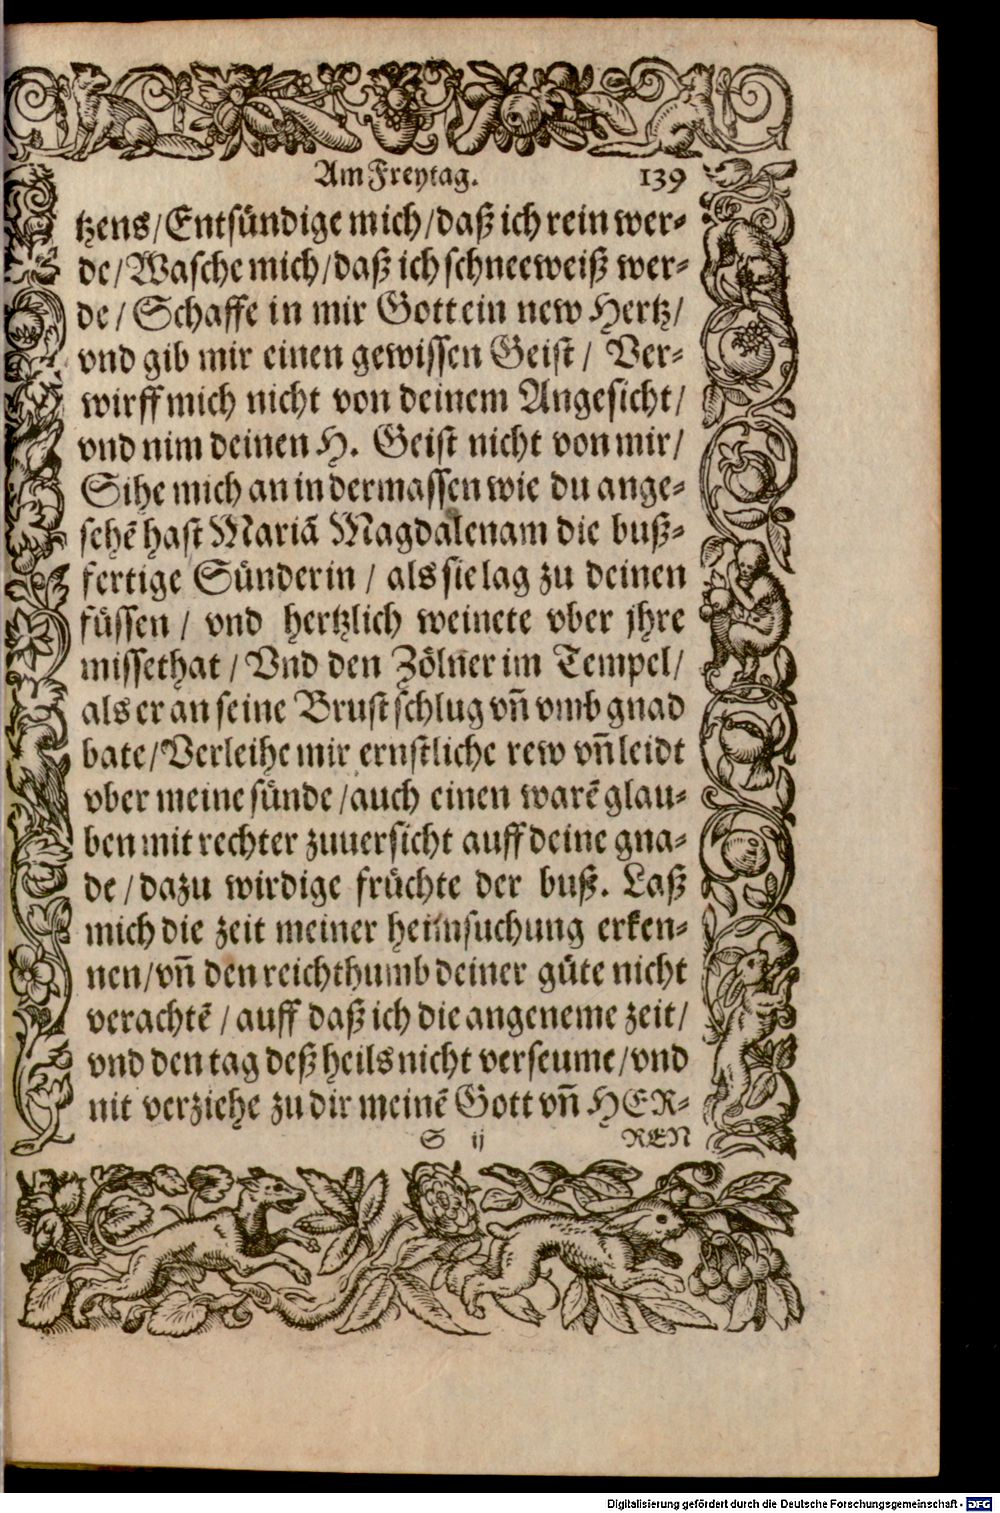 Am Freytag. 139
tzens/Entsündige mich/daß ich rein wer-
de/Wasche mich/daß ich schneeweiß wer-
de/ Schaffe in mir Gott ein new Hertz/
vnd gib mir einen gewissen Geist/ Ver-
wirff mich nicht von deinem Angesicht/
vnd nim deinen H. Geist nicht von mir/
Sihe mich an in dermassen wie du ange-
sehẽ hast Mariã Magdalenam die buß-
fertige Sünderin / als sie lag zu deinen
füssen / vnd hertzlich weinete vber jhre
missethat / Vnd den Zölner im Tempel/
als er an seine Brust schlug vñ vmb gnad
bate/Verleihe mir ernstliche rew vñ leidt
vber meine sünde /auch einen warẽ glau-
ben mit rechter zuuersicht auff deine gna-
de / dazu wirdige früchte der buß. Laß
mich die zeit meiner heimsuchung erken-
nen/vñ den reichthumb deiner güte nicht
verachtẽ / auff daß ich die angeneme zeit/
vnd den tag deß heils nicht verseume/vnd
nit verziehe zu dir meinẽ Gott vñ HER-
S ij REN
Digitalisierung gefördert durch die Deutsche Forschungsgemeinschaft - DFG